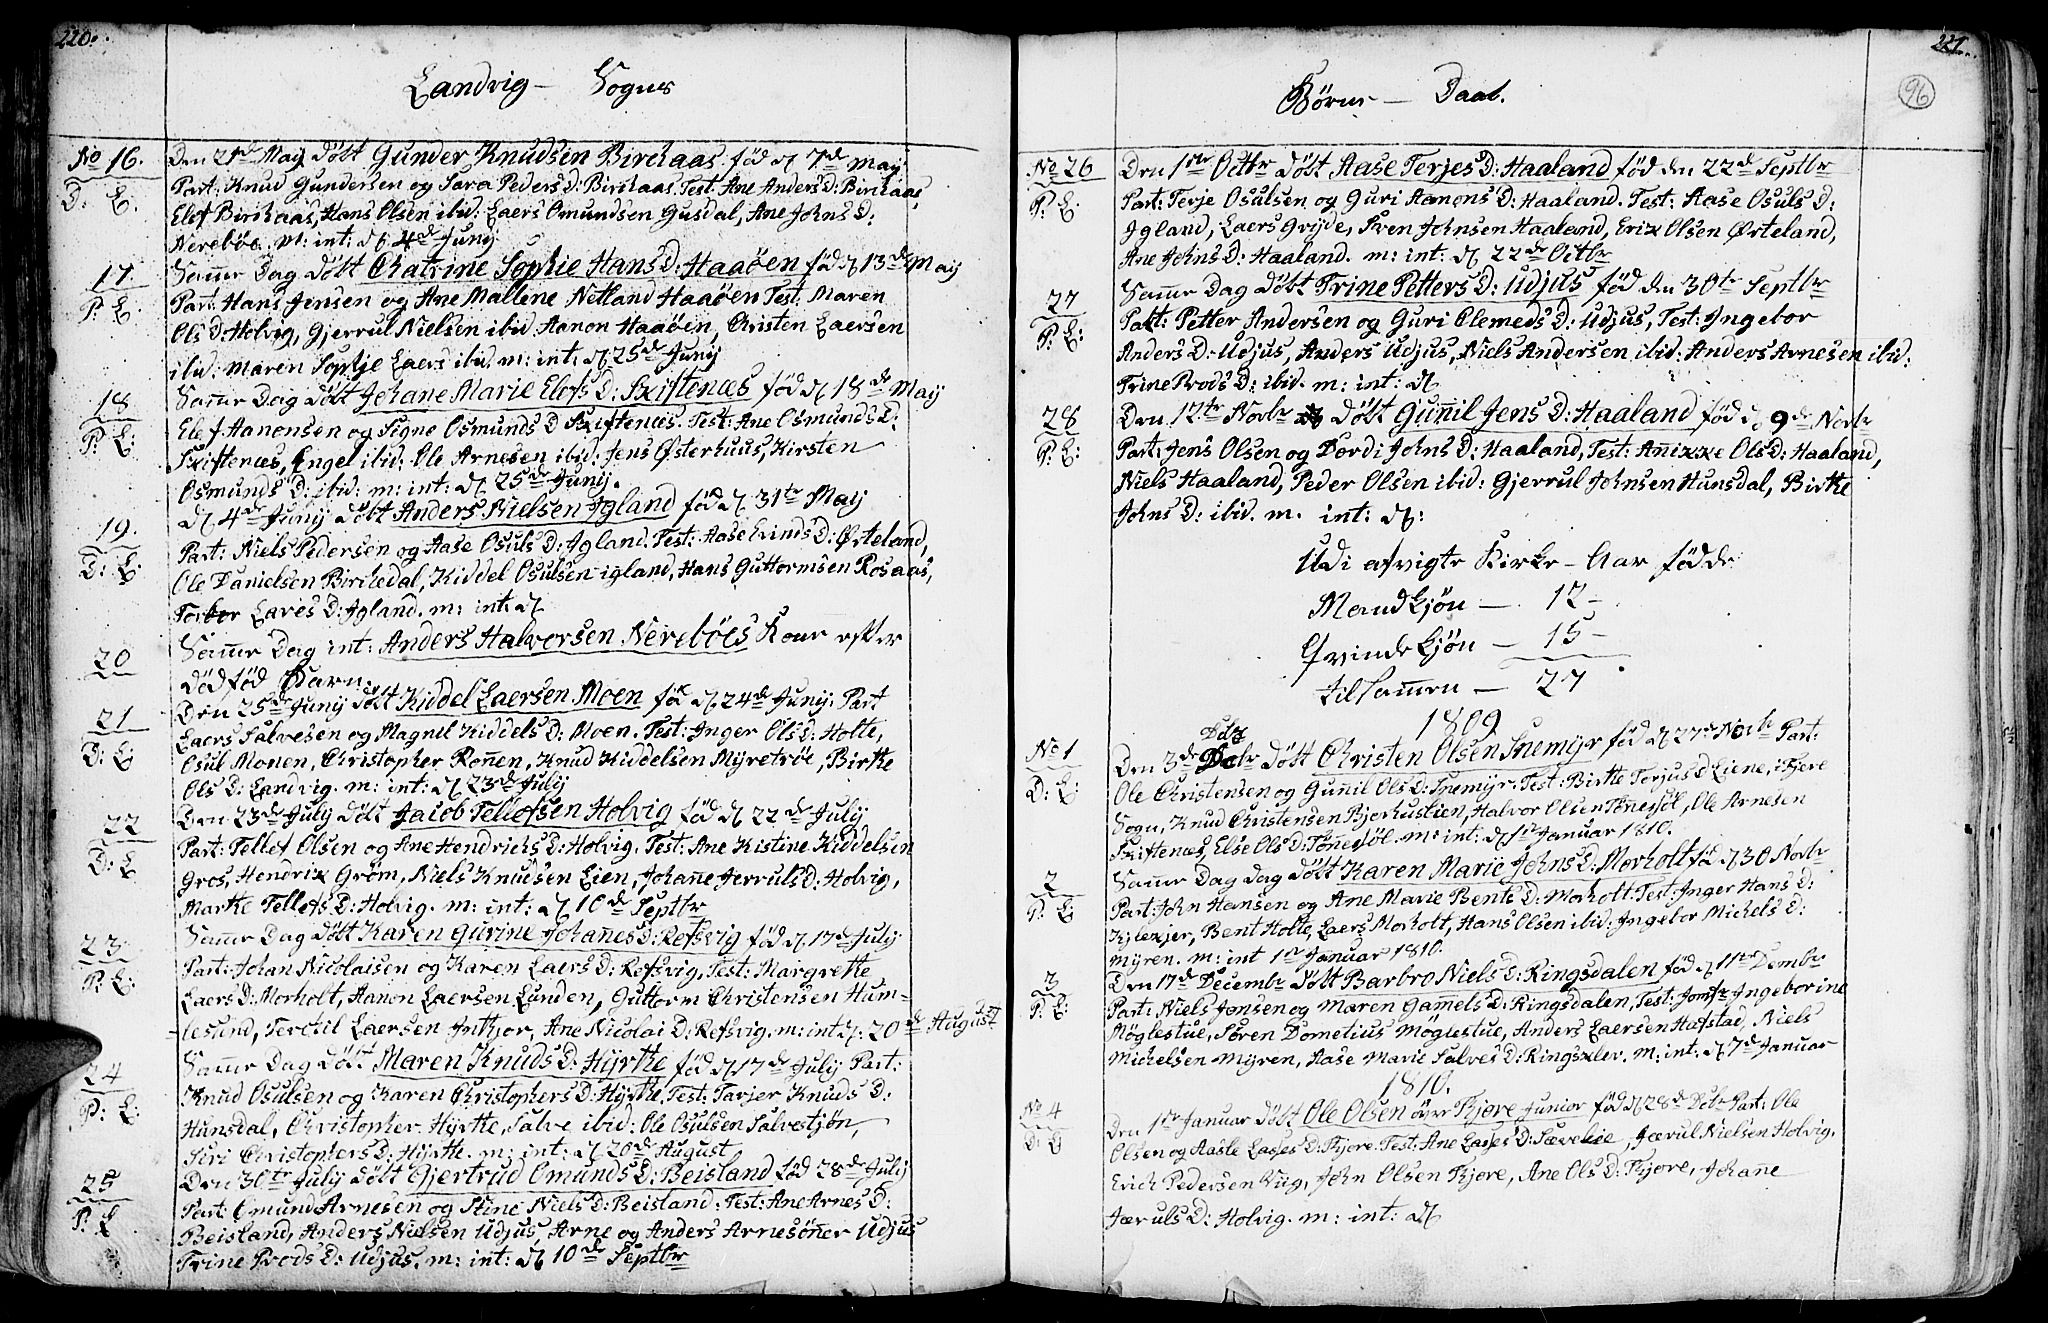 220.
Landvig — Sogns
No 16.
Den 21de May døbt Gunder Knudsen Birchaas. fød d. 7de May
D: E.
Part: Knud Gundersen og Sara Peders D: Birchaas. Test: Ane Anders D: Birchaas,
Elef Birchaas, Hans Olsen ibid: Laers Omundsen Gusdal, Ane Johns D:
Nereböe. m: int: d. 4de Junij
17.
Samme Dag døbt Chatrine Sophie Hans D: Haaöen fød d. 13de May
P: E:
Part: Hans Jensen og Ane Mallene Netland Haaöen Test: Maren
Ols D: Holvig, Gjerrul Nielsen ibid. Aanon Haaöen, Christen Laersen
ibid: Maren Sophje Laers ibid. m: int: d. 25de Junij
18
Samme Dag døbt Johane Marie Elefs D: Skiftenæs fød d. 18de May
P: E:
Elef Aanonsen og Signe Osmunds D Skiftenæs. Test: Ane Osmunds D:
Skiftenæs, Engel ibid: Ole Arnesen ibid: Jens Østerhuus, Kirsten
Osmunds D: ibid: m: int: d. 25de Junij.
19.
d. 4de Junij døbt Anders Nielsen Igland fød d. 31te May
D: E:
Part: Niels Pedersen og Aase Osuls D: Igland. Test: Aase Evinds D: Ørteland,
Ole Danielsen Birchedal, Kiddel Osulsen igland, Hans Guttormsen Rosaas,
Torbor Lares D: Igland. m: int: d.
20
Samme Dag int: Anders Halvorsen Nereböes Kone efter
dödfød Barn.
21
Den 25de Junij døbt Kiddel Laersen Moen fød d. 24de Junij. Part
D: E:
Laers Salvesen og Magnil Kiddels D: Moen. Test: Inger Ols D: Holte,
Osul Monen, Christopher Ronnen, Knud Kiddelsen Myretröe, Birthe
Ols D: Landvig. m: int: d. 23de Julij
22
Den 23de Julij døbt Jacob Tellefsen Holvig fød d. 22de Julij
D: E
Part: Tellef Olsen og Ane Hendrichs D: Holvig. Test: Ane Kistine Kiddelsen
Gros, Hendrix Gröm, Niels Knudsen Eien, Johanne Jerruls D: Holvig,
Marthe Tellefs D: Holvig. m: int: d. 10de Septbr
23
Samme Dag døbt Karen Gurine Johanes D: Refsvig fød d. 17de Julij
P: E:
Part: Johan Nicolaisen og Karen Laers D: Refsvig, Test: Margrethe
Laers D: Morholt, Aanon Laersen Lunden, Guttorm Christensen Hum-
lesund, Terchil Laersen Inthjor, Ane Nicolai D: Refsvig. m: int d: 20de August
24
Samme Dag døbt Maren Knuds D: Hyrthe fød d. 17de Julij Part:
P: E:
Knud Osulsen og Karen Christophers D: Hyrthe, Test: Tarjer Knuds D:
Hunsdal, Christopher Hyrthe, Salve ibid: Ole Osulsen Salvestjön,
Siri Christophers D: Hyrthe. m: int: d. 20de August
25
Den 30te Julij døbt Gjertrud Omunds D: Beisland fød 28de Julij
P: E
Part: Omund Arnesen og Stine Niels D: Beisland: Test: Ane Arnes D:
Beisland, Anders Nielsen Udjus, Arne og Anders Arnesönner Udjus
Trine Prods D: Udjus. m: int: d. 10de Septbr
221.
96
Börne — Daab.
No 26
Den 1ste Octbr døbt Aase Terjes D: Haaland fød den 22de Septbr
P: E.
Part: Terje Osulsen og Guri Aanons D: Haaland. Test: Aase Osuls D:
Igland, Laers Gryde, Sven Johnsen Haaland, Erix Olsen Ørteland,
Ane Johns D: Haaland. m: int: d. 22de Octbr
27
Samme Dag døbt Trine Petters D: Udjus fød den 30te Septbr
P: E:
Part: Petter Andersen og Guri Clemeds D: Udjus, Test: Ingebor
Anders D: Udjus, Anders Udjus, Niels Andersen ibid: Anders Arnesen ibid:
Trine Prods D: ibid. m: int: d.
28
Den 12te Novbr døbt Gunnil Jens D: Haaland fød d. 9de Novbr
P: E:
Part: Jens Olsen og Dordi Johns D: Haaland, Test: Anixxe Ols D: Haaland,
Niels Haaland, Peder Olsen ibid: Gjerrul Johnsen Hunsdal, Birthe
Johns D: ibid. m. int: d:
Udi afvigte Kirke-Aar födde
Mandkjön — 12 —
Qvindekjön — 15 —
tilsammen — 27
1809
No 1
Den 3de Decbr døbt Christen Olsen Snemyr fød d. 27de Novbr Part:
D: E:
Ole Christensen og Gunil Ols D: Snemyr. Test: Birthe Torjus D Liene, i Fjere
Sogn, Knud Christensen Bjorhustien, Halvor Olsen Tönnesöl, Ole Arnesen
Skiftenæs, Else Ols D: Tönnesöl. m: int: d. 1ste Januar 1810.
2
Samme Dag dag døbt Karen Marie Johns D: Morholt fød d. 30 Novbr
P: E
Part: John Hansen og Ane Marie Bents D: Morholt: Test: Inger Hans D:
Kjlexjer, Bent Holte, Laers Morholt, Hans Olsen ibid: Ingebor Michels D:
Myren. m: int 1ste Januar 1810.
3
Den 17de Decembr døbt Barbro Niels D: Ringsdalen fød d. 11te Dcembr
P: E:
Part: Niels Jensen og Maren Gamels D: Ringsdalen, Test: Jomfr Ingeborine
Möglestue, Sören Dometius Möglestue, Anders Laersen Hafstad, Niels
Michelsen Myren, Aase Marie Salves D: Ringsxlev. m: int: d. 7de Januar
1810.
No 4
Den 1ste Januar døbt Ole Olsen över Kjöre Junior fød d. 28de Dcbr Part: Ole
D: E
Olsen og Aaste Lases D: Kjore. Test: Ane Lases D: Sævelie, Jærul Nielsen Holvig.
Erich Pedersen Viig, John Olsen Kjore, Ane Ols D: Kjore, Johane
Jæruls D: Holvig. m: int: d.